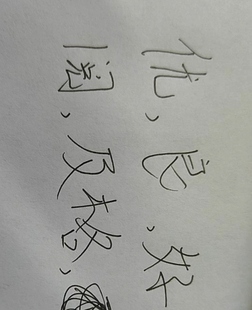 优、良、好
阅、及格、